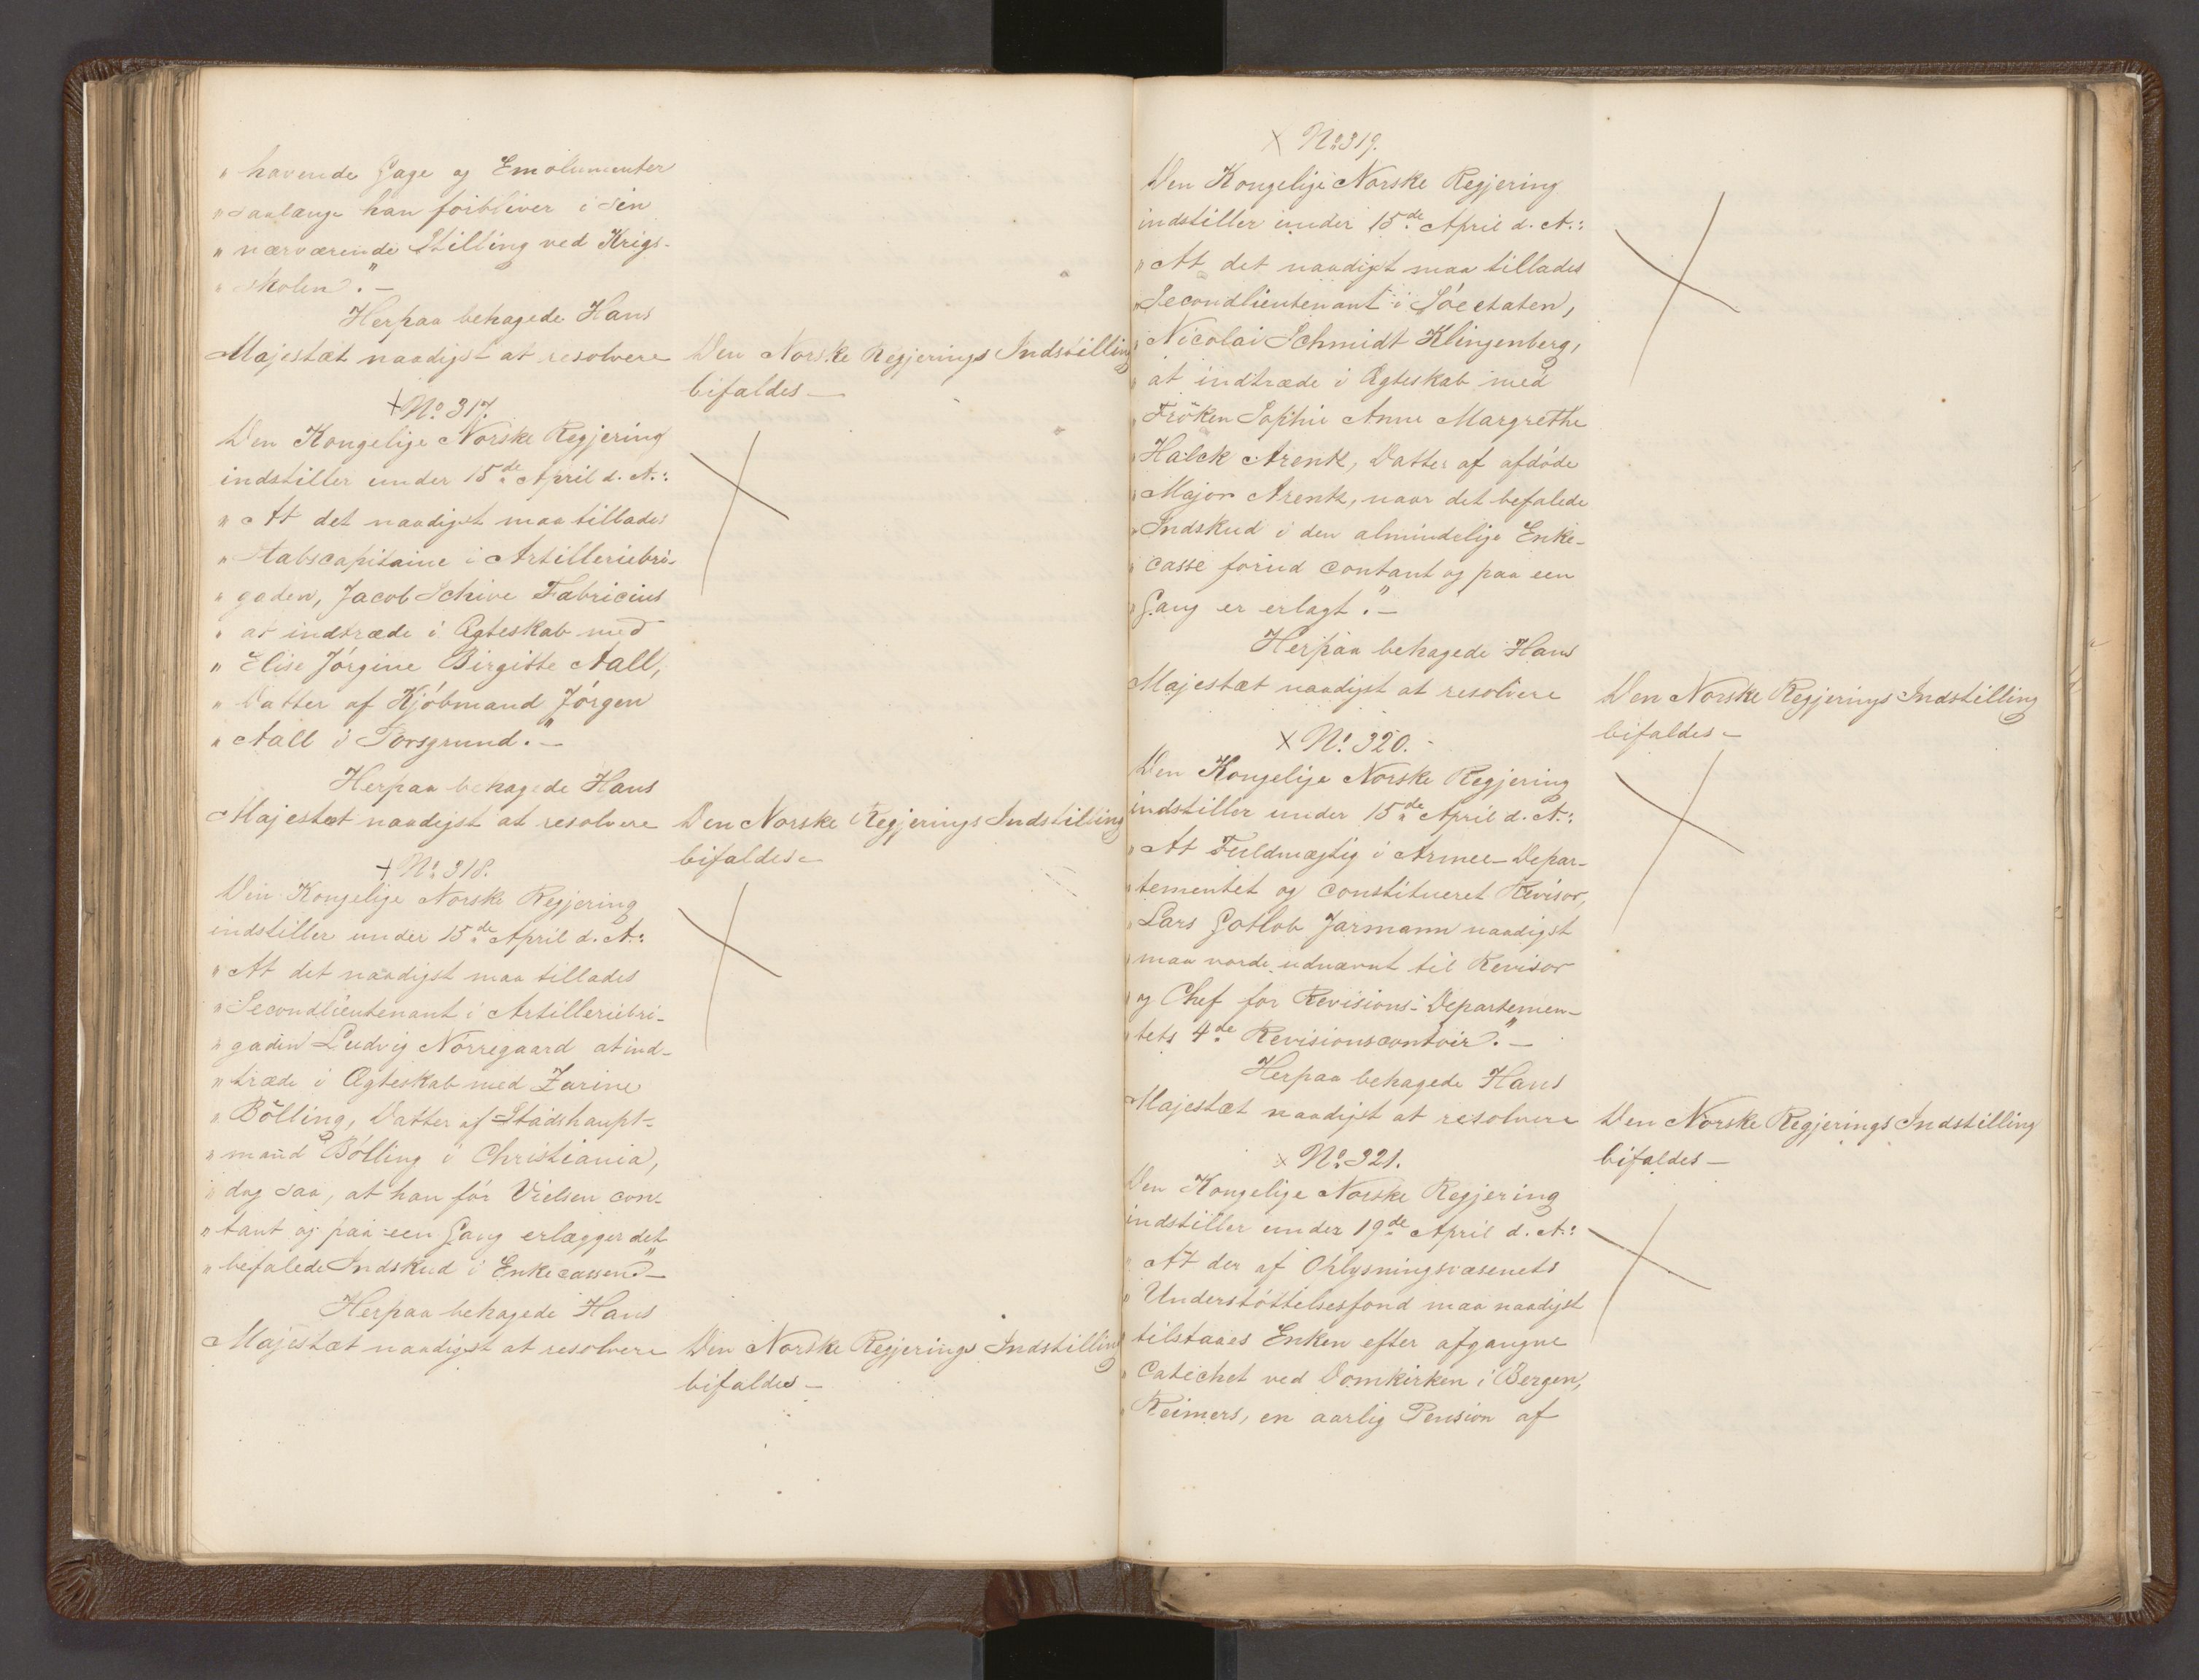 " havende Gage og Emolumenter
" saalænge han forbliver i sin
" nærværende Stilling ved Krigs-
" skolen." -
Herpaa behagede Hans
Majestæt naadigst at resolvere
Den Norske Regjerings Indstilling
bifaldes -
+ No 317.
Den Kongelige Norske Regjering
indstiller under 15de April d. A.:
" At det naadigst maa tillades
" Stabscapitaine i Artilleriebri-
" gaden, Jacob Schive Fabricius
" at indtræde i Ægteskab med
" Elise Jørgine Birgitte Aall,
" Datter af Kjøbmand Jørgen
" Aall i Porsgrund." -
Herpaa behagede Hans
Majestæt naadigst at resolvere
Den Norske Regjerings Indstilling
bifaldes -
+ No 318.
Den Kongelige Norske Regjering
indstiller under 15de April d. A.:
" At det naadigst maa tillades
" Secondlieutenant i Artilleriebri-
" gaden Ludvig Nørregaard at ind-
" træde i Ægteskab med Zarine
" Bølling, Datter af Stadshaupt-
" mand Bølling i Christiania,
" dog saa, at han før Vielsen con-
" tant og paa een Gang erlægger det
" befalede Indskud i Enkecassen" -
Herpaa behagede Hans
Majestæt naadigst at resolvere
Den Norske Regjerings Indstilling
bifaldes -
x No 319.
Den Kongelige Norske Regjering
indstiller under 15de April d. A.:
" At det naadigst maa tillades
" Secondlieutenant i Søeetaten,
" Nicolai Schmidt Klingenberg,
" at indtræde i Ægteskab med
" Frøken Sophie Anne Margrethe
" Halck Arentz, Datter af afdøde
" Major Arentz, naar det befalede
" Indskud i den almindelige Enke-
" casse forud contant og paa een
" Gang er erlagt." -
Herpaa behagede Hans
Majestæt naadigst at resolvere
Den Norske Regjerings Indstilling
bifaldes -
x No 320. -
Den Kongelige Norske Regjering
indstiller under 15de April d. A.:
" At Fuldmægtig i Armee-Depar-
" tementet og constitueret Revisor,
" Lars Gotlob Jarmann naadigst
" maa vorde udnævnt til Revisor
" og Chef for Revisions-Departemen-
" tets 4de Revisionscontoir." -
Herpaa behagede Hans
Majestæt naadigst at resolvere
Den Norske Regjerings Indstilling
bifaldes -
x No 321.
Den Kongelige Norske Regjering
indstiller under 19de April d. A.:
" At der af Oplysningsvæsenets
" Understøttelsesfond maa naadigst
" tilstaaes Enken efter afgangne
" Catechet ved Domkirken i Bergen,
" Reimers, en aarlig Pension af